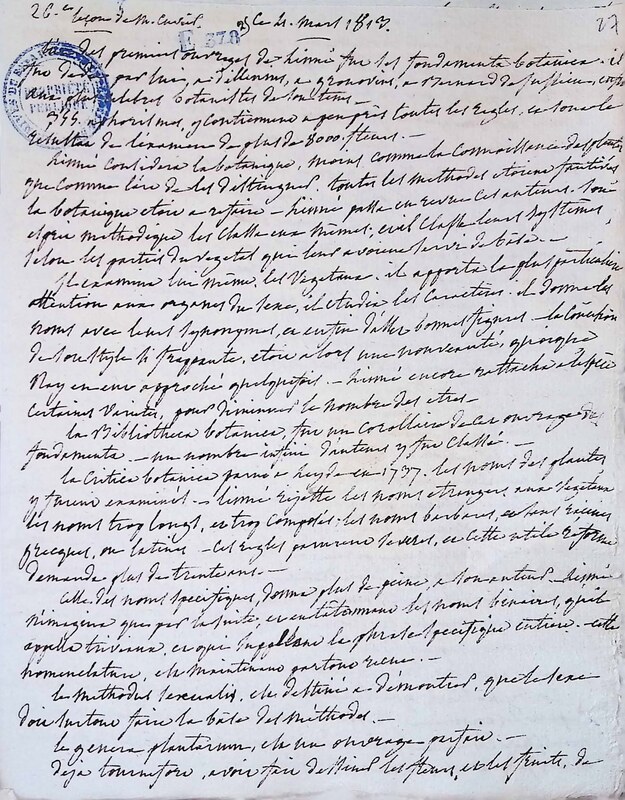 26.e leçon de M. Cuvier. Ce 21. Mars 1813. 27
E 378
PROPRIÉTÉ PUBLIQUE
des premiers ouvrages de Linné fut les fundamenta botanica. il
fut dedié par lui, a Dillenius, a gronovius, a Bernard de Jussieu,
celebres botanistes de son tems.
365. aphorismes, y contiennent a peu près toutes les regles, et sont le
resultat de l'examen de plus de 8000. fleurs. —
Linné considera la botanique, moins comme la connoissance des plantes
que comme l'art de les distinguer. toutes les methodes etoient fautives
la botanique etoit a refaire — Linné passa en revue ces auteurs. Son
esprit methodique les classa eux mêmes, et il classa leurs systèmes,
selon les parties du vegetal qui leur avoient servi de base. —
Il examina lui même, les vegetaux. il apporta la plus particuliere
attention aux organes du sexe, il etudia les caracteres. il donna les
noms avec leurs synonymes, et enfin d'assez bonnes figures — la concision
de son style si frappante, etoit alors une nouveauté, quoique
Ray en eut approché quelquefois. — Linné encore rattacha a l'espèce
certaines varietés, pour diminuer le nombre des etres —
la Bibliotheca botanica fut un corollaire de cet ouvrage des
fundamenta. — un nombre infini d'auteurs y fut classé. —
la critica botanica parut a leyde en 1737. les noms des plantes
y furent examinés. — Linné rejette les noms etrangers aux vegetaux
les noms trop longs, et trop composés. les noms barbares, et sans racines
grecques, ou latines — Ces regles parurent severes, et cette utile réforme
demanda plus de trente ans. —
Celle des noms specifiques, donna plus de peine, a son auteur — Linné
n'imagina que par la suite, les noms binaires, qu'il
appella triviaux, et qui la phrase specifique entiere. — cette
nomenclature, est maintenant partout recue. —
la methodus sexualis, est destiné a démontrer, que le sexe
doit surtout faire la base des méthodes. —
le genera plantarum, est un ouvrage parfait. —
deja tournefort, avoit fait dessiner les fleurs, et les fruits, de